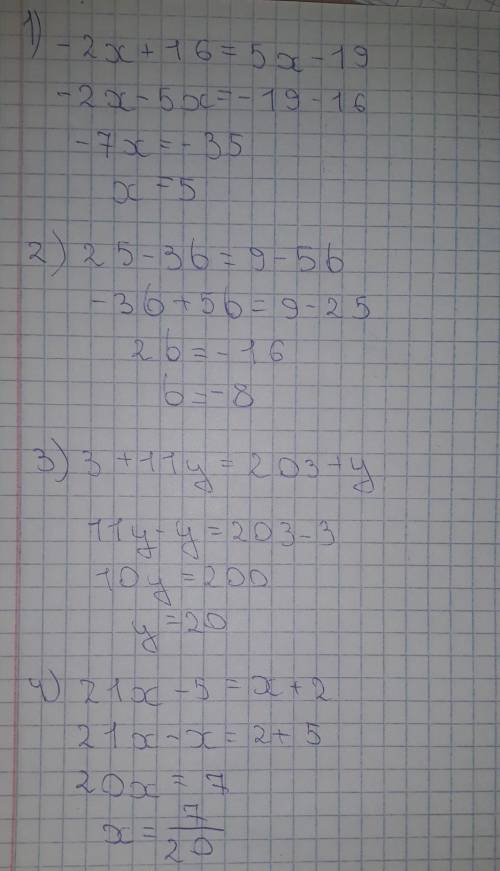 1) -2x+16=5x-19
-2x-5x=-19-16
-7x=-35
x=5
2) 25-3b=9-5b
-3b+5b=9-25
2b=-16
b=-8
3) 3+11y=203+y
11y-y=203-3
10y=200
y=20
4) 21x-5=x+2
21x-x=2+5
20x=7
x=7/20